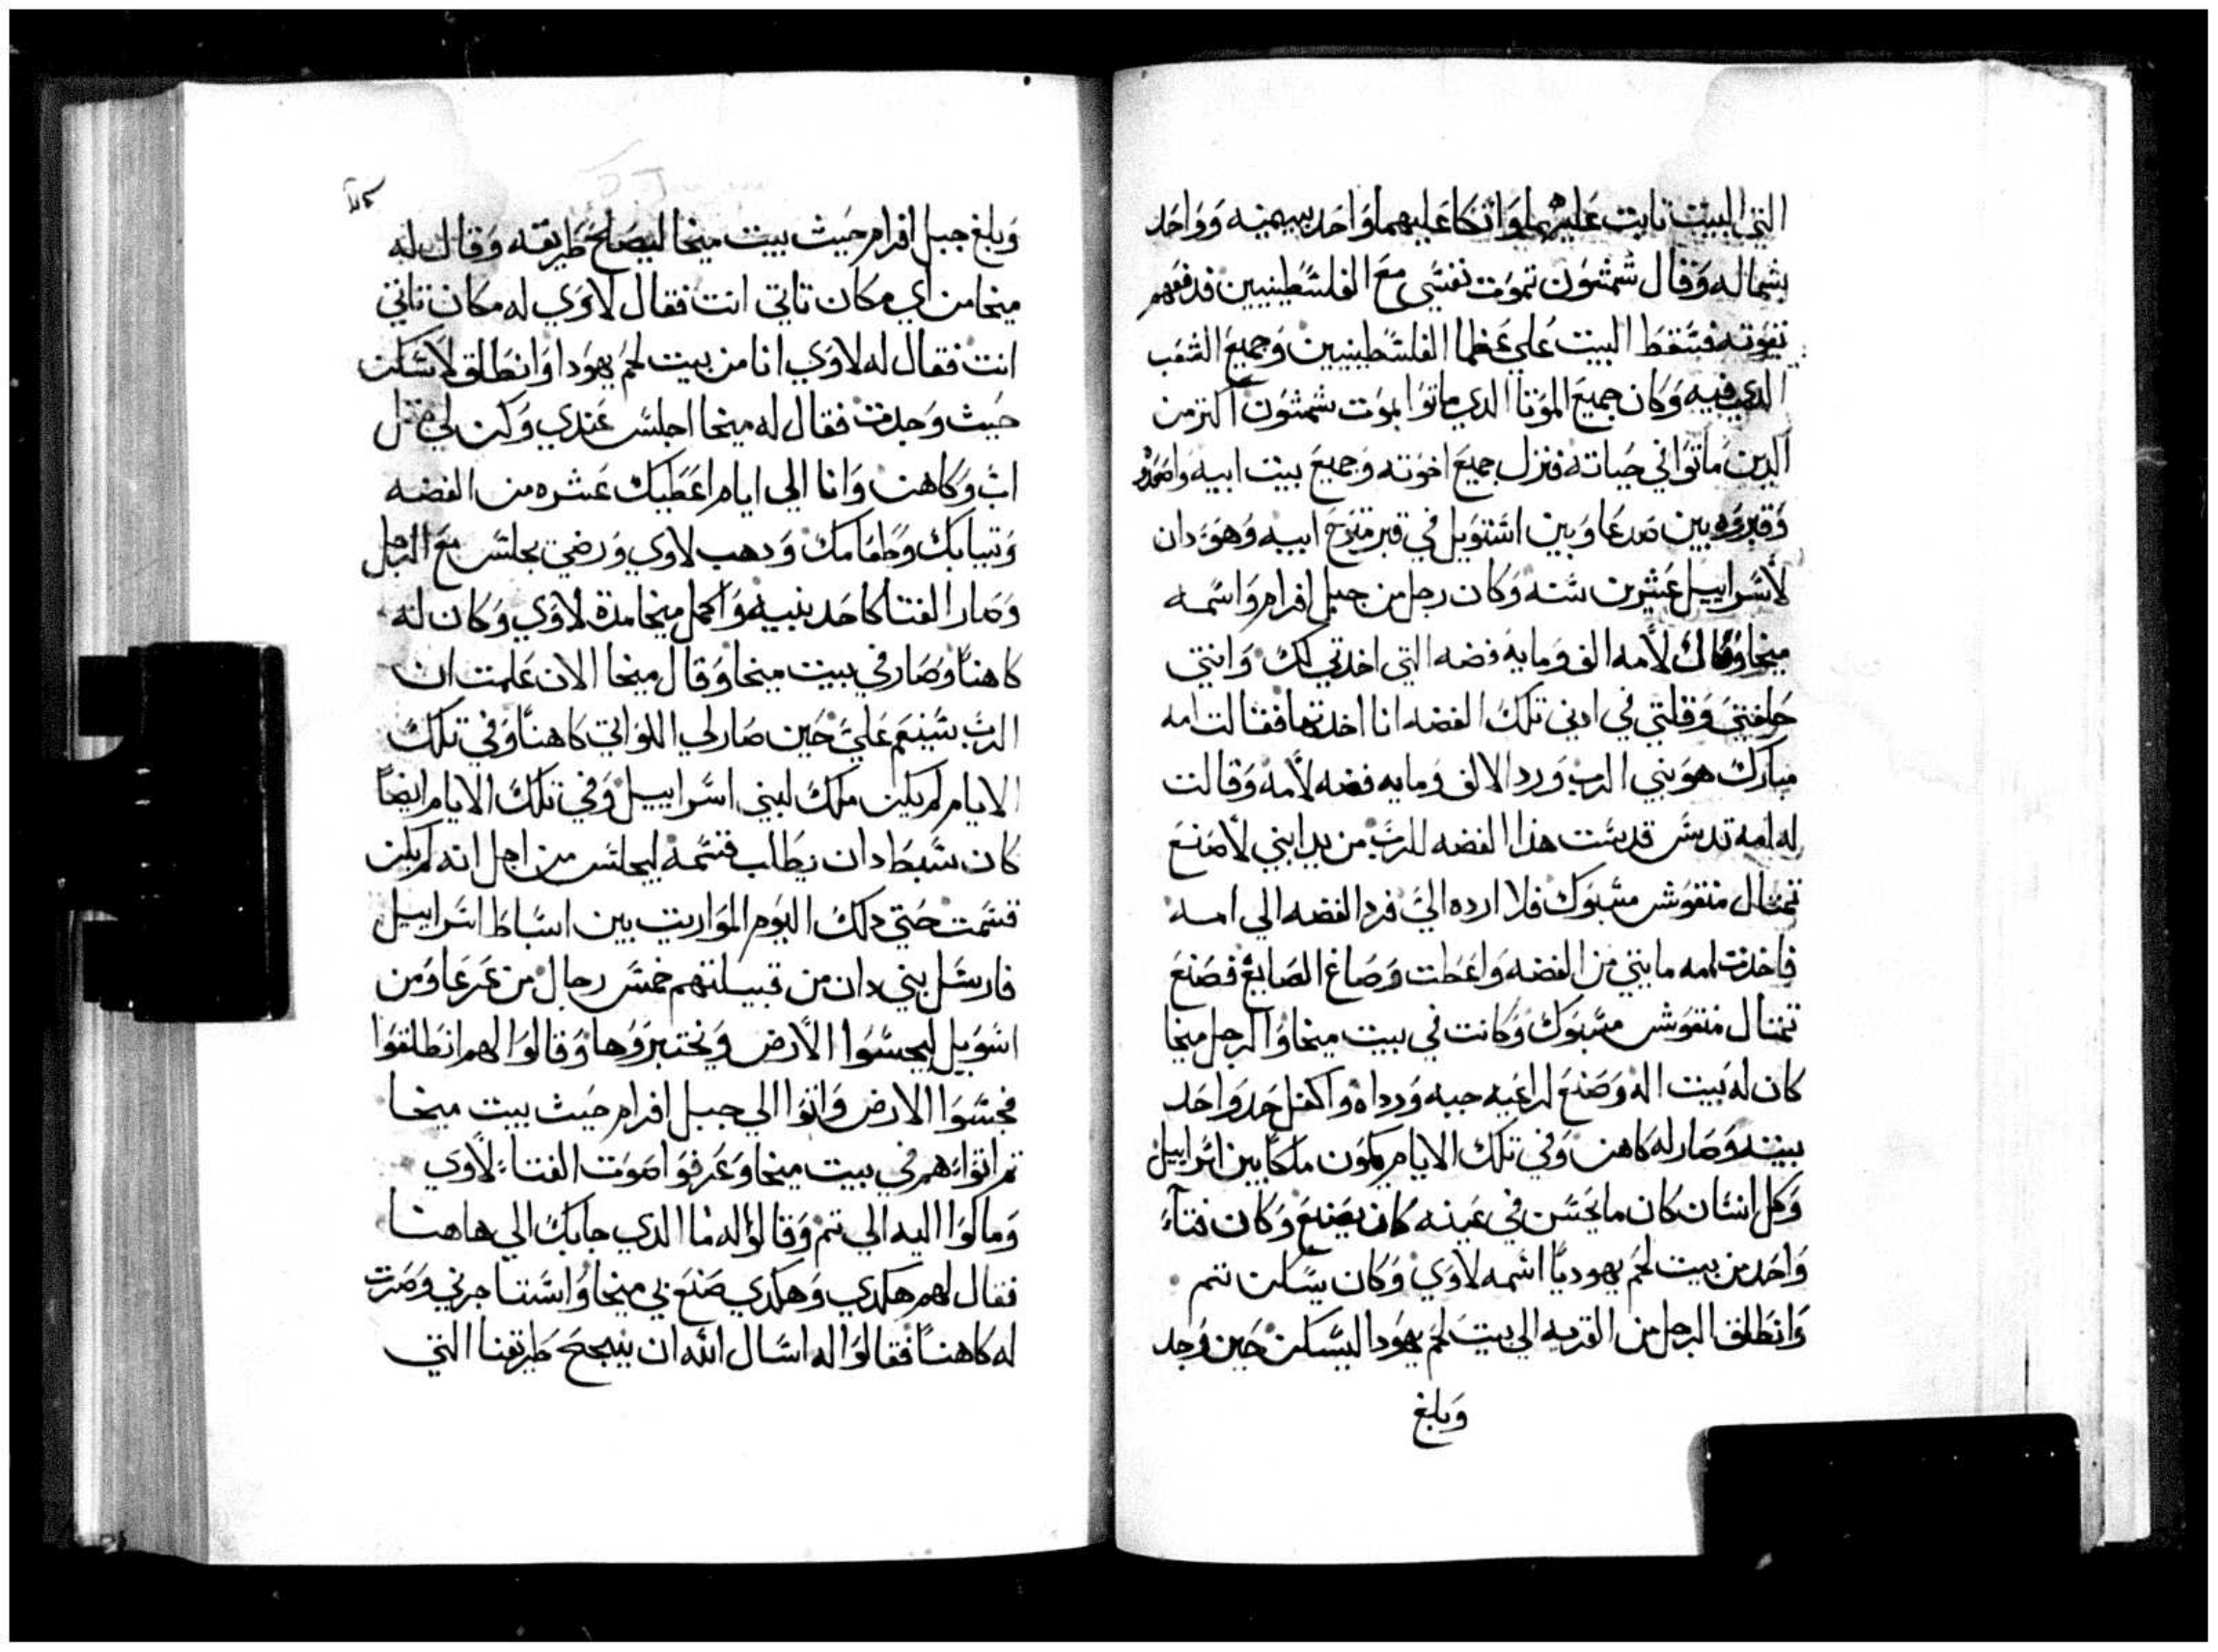 التي البيت تابت عليهما واتكا عليهما واحد بيمينه وواحد
بشماله وقال شمشون تموت نفسي مع الفلسطينيين فدفعهم
بقوته فسقط البيت علي عظما الفلسطينيين وجميع الشعب
الدي فيه وكان جميع الموتا الدي ماتوا بموت شمشون اكتر من
الدين ماتوا في حياته فنزل جميع اخوته وجميع بيت ابيه واصعدوه
وقبروه بين صرعا وبين اشتويل في قبر منوح ابيه وهو دان
لأسراييل عشرين سنه وكان رجل من جبل افرام واسمه
ميخا وقال لأمه الف ومايه فضه التي اخدتي لك وانتي
حلفتي وقلتي في ادني تلك الفضه انا اخدتها فقالت امه
مبارك هو بني الرب ورد الالف ومايه فضه لأمه وقالت
له امه تديس قدست هدا الفضه للرب من يد ابني لأصنع
تمتال منقوش مسبوك فلا ارده الي فرد الفضه الي امه
فاخدت امه مايتي من الفضه واعطت وصاغ الصايغ فصنع
تمتال منقوش مسبوك وكانت في بيت ميخا والرجل ميخا
كان له بيت اله وصنع لراعيه جبه ورداه واكفل حد واحد
بيته وصار له كاهن وفي تلك الايام يكون ملكا بين اسراييل
وكل انسان كان ما يحسن في عينه كان يصنع وكان فتاء
واحد من بيت لحم يهوديا اسمه لاوي وكان يسكن تتم
وانطلق الرجل من القريه الي بيت لحم يهودا ليسكن حين وجد
وبلغ
وبلغ جبل افرام حيث بيت ميخا ليصلح طريقه وقال له
ميخا من اي مكان تاتي انت فقال لاوي له مكان تاتي
انت فقال له لاوي انا من بيت لحم يهودا وانطلق لأسكن
حيث وجدت فقال له ميخا اجلس عندي وكن لي مثل
اب وكاهن وانا الي ايام اعطيك عشره من الفضه
وتيابك وطعامك ودهب لاوي ورضي يجلس مع الرجل
وصار الفتا كاحد بنيه واكمل ميخا مدة لاوي وكان له
كاهنا وصار في بيت ميخا وقال ميخا الان علمت ان
الرب سينعم علي حين صار لي اللواتي كاهنا وفي تلك
الايام لم يكن ملك لبني اسراييل وفي تلك الايام ايضا
كان سبط دان يطلب قسمه ليجلس من اجل انه لم يكن
قسمت حتي دلك اليوم المواريت بين اسباط اسراييل
فارسل بني دان من قبيلتهم خمس رجال من عرعا ومن
اسويل ليجسوا الأرض ونختبروها وقالوا لهم انطلقوا
فجسوا الارض واتوا الي جبل افرام حيث بيت ميخا
تم اتوا هم في بيت ميخا وعرفوا صوت الفتاء لأوي
ومالوا اليه الي تم وقالوا له ما الدي جابك الي هاهنا
فقال لهم هكدي وهكدي صنع بي ميخا واستاجرني وصرت
له كاهنا فقالوا له اسال الله ان ينجح طريقنا التي